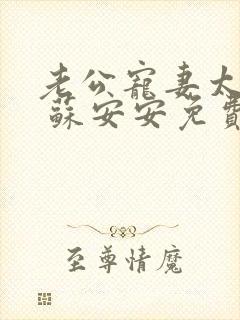 老公寵妻太
蘇安安免費
至尊情魔